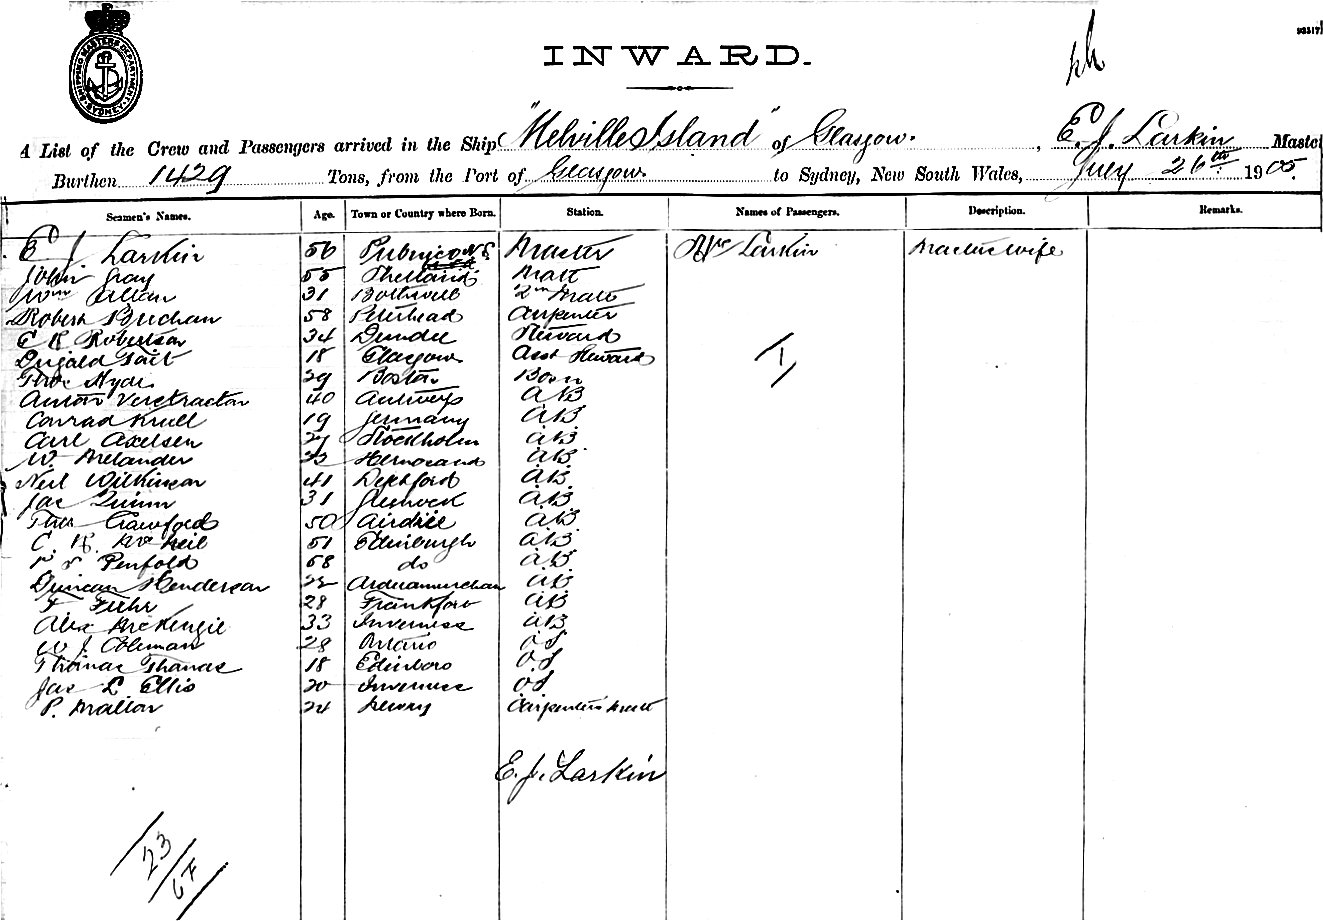 SHIPPING MASTERS DEPARTMENT SYDNEY
INWARD.
A List of the Crew and Passengers arrived in the Ship "Melville Island" of Glasgow. , E. J. Larkin Master
Burthen 1429 Tons, from the Port of Glasgow to Sydney, New South Wales, July 26th 1905.
Seamen's Names. Age. Town or Country where Born. Station. Names of Passengers. Description. Remarks.
E J Larkin 56 Pubnico N S Master Mrs Larkin Masters wife
John Gray 55 Shetland Mate
Wm Allan 31 Bothwell 2nd Mate
Robert Buchan 58 Peterhead Carpenter
C R Robertson 34 Dundee Steward
Dugald Tait 18 Glasgow Asst Steward
Thos Hyde 29 Boston Bosn
Anton Verstracton 40 Antwerp AB
Conrad Krull 19 Germany AB
Carl Axelsen 27 Stockholm AB
W. Melander 33 Hernosand AB
Neil Wilkinson 41 Deptford AB
Jas Quinn 31 Greenock AB
Thos Crawford 50 Airdrie AB
C. H. McNeil 51 Edinburgh AB
Penfold 58 do AB
Duncan Henderson 22 Ardnamurchan AB
F Fuhr 28 Frankfort AB
Alex McKenzie 33 Inverness AB
W J Coleman 28 Ontario OS
Thomas Thomas 18 Edinboro OS
Jas L Ellis 20 Inverness OS
P. Mallon 24 Newry Carpenters Mate
E. J. Larkin
1
23